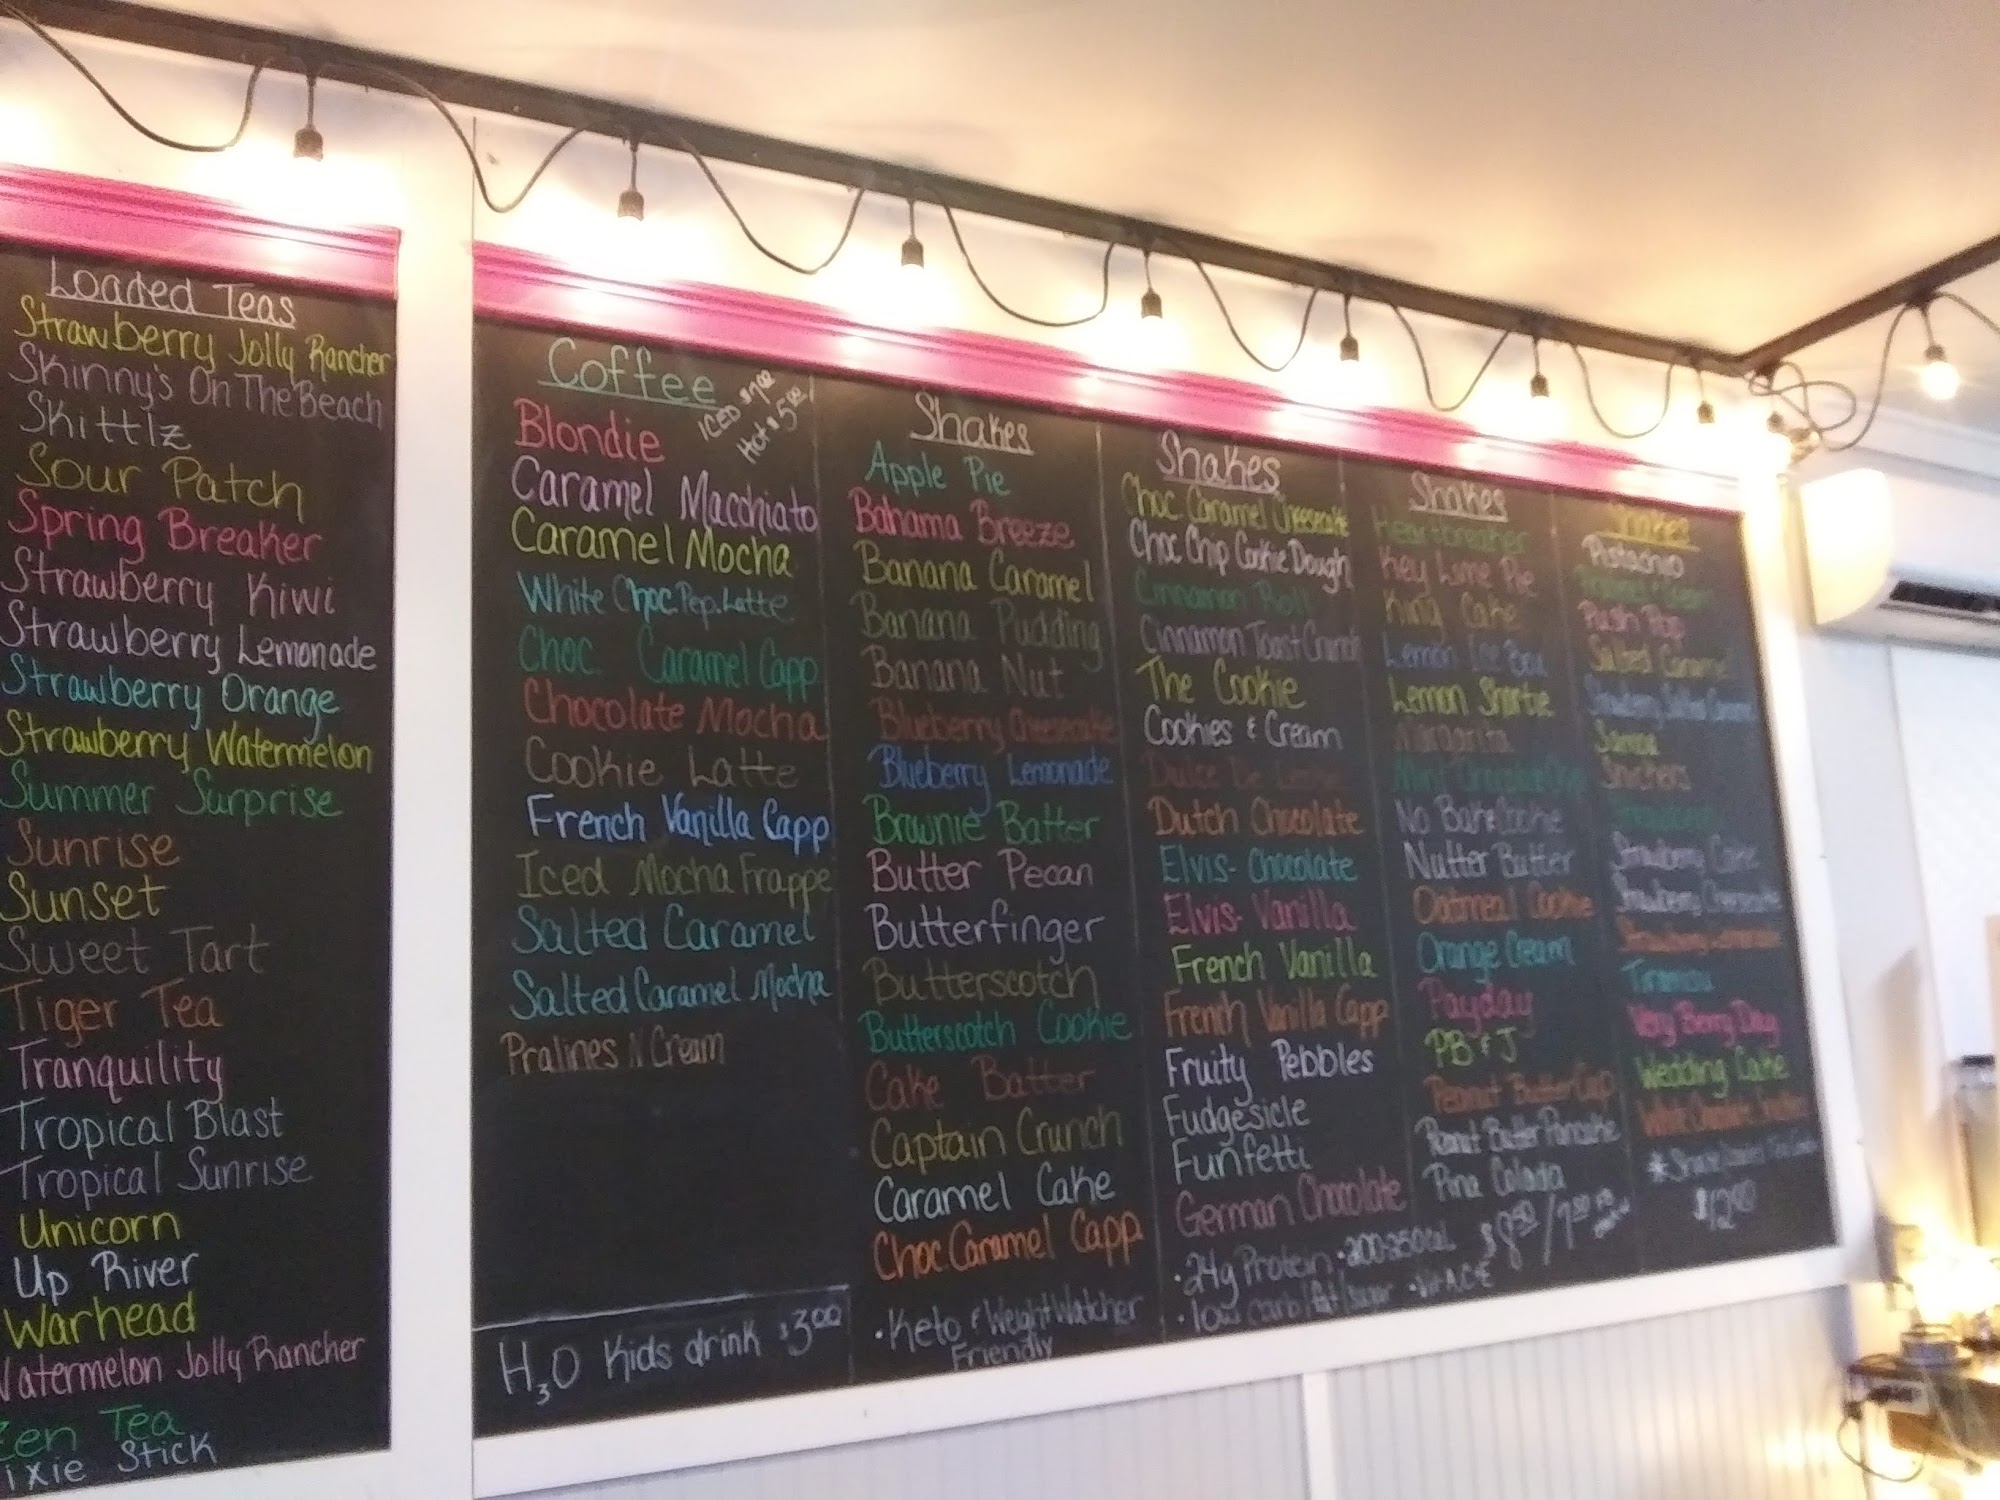 Loaded Teas
Strawberry Jolly Rancher
Skinny's On The Beach
Skittlz
Sour Patch
Spring Breaker
Strawberry Kiwi
Strawberry Lemonade
Strawberry Orange
Strawberry Watermelon
Summer Surprise
Sunrise
Sunset
Sweet Tart
Tiger Tea
Tranquility
Tropical Blast
Tropical Sunrise
Unicorn
Up River
Warhead
Watermelon Jolly Rancher
Zen Tea
ixie Stick
Coffee
ICED
Hot $5.00
Blondie
Caramel Macchiato
Caramel Mocha
White Choc.Pep.Latte
Choc. Caramel Capp
Chocolate Mocha
Cookie Latte
French Vanilla Capp
Iced Mocha Frappe
Salted Caramel
Salted Caramel Mocha
Pralines N Cream
H3O Kids drink $3.00
Shakes
Apple Pie
Bahama Breeze
Banana Caramel
Banana Pudding
Banana Nut
Blueberry Cheesecake
Blueberry Lemonade
Brownie Batter
Butter Pecan
Butterfinger
Butterscotch
Butterscotch Cookie
Cake Batter
Captain Crunch
Caramel Cake
Choc Caramel Capp
• Keto & Weight Watcher
Friendly
Shakes
Choc Caramel Cheesecake
Choc Chip Cookie Dough
Cinnamon Roll
Cinnamon Toast Crunch
The Cookie
Cookies & Cream
Dulce De
Dutch Chocolate
Elvis- Chocolate
Elvis- Vanilla
French Vanilla
French Vanilla Capp
Fruity Pebbles
Fudgesicle
Funfetti
German Chocolate
• 24g Protein • 200-250 Cal
• low carb/fat/sugar
Shakes
Heartbreaker
Key Lime Pie
King Cake
Lemon Ice Box
Lemon Sharbe
Margarita
Mint Chocolate Chip
No Bake Cookie
Nutter Butter
Oatmeal Cookie
Orange Cream
Payday
PB & J
Peanut Butter Cup
Peanut Butter Pancake
Pina Colada
$8.50
Shakes
Pistachio
Push Pop
Salted Caramel
Strawberry Salted Caramel
Samoa
Snickers
Strawberry Cake
Strawberry Cheesecake
Strawberry Lemonade
Tiramisu
Very Berry Day
Wedding Cake
$12.00